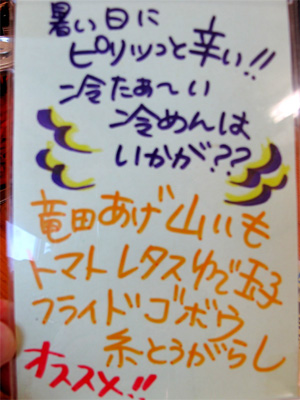 暑い日に
ピリッっと辛い!!
冷たぁ〜い
冷めんは
いかが??
竜田あげ 山いも
トマト レタス ゆで玉子
フライドゴボウ
糸とうがらし
オススメ!!